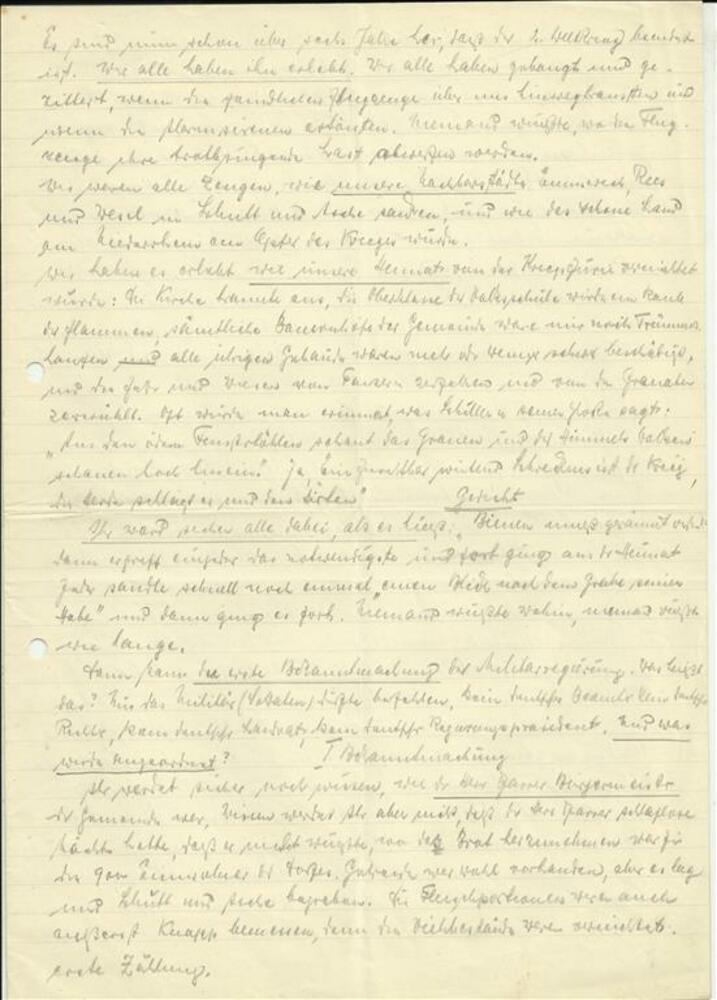 Es sind nun schon über sechs Jahre her, daß der 2. Weltkrieg beendet
ist. Wir alle haben ihn erlebt. Wir alle haben gebangt und ge-
zittert, wenn die feindlichen Flugzeuge über uns hinwegbrausten und
wenn die Alarmsirenen ertönten. Niemand wußte, wo die Flug-
zeuge ihre todbringende Last abwerfen werden.
Wir waren alle Zeugen, wie unsere Nachbarstädte Emmerich, Rees
und Wesel in Schutt und Asche sanken, und wie das schöne Land
am Niederrhein ein Opfer des Krieges wurde.
Wir haben es erlebt wie unsere Heimat von der Kriegsfurie vernichtet
wurde: Die Kirche brannte aus, die Oberklasse der Volksschule wurde ein Raub
der Flammen, sämtliche Bauernhöfe der Gemeinde waren nur noch Trümmer-
haufen und alle übrigen Gebäude waren mehr oder weniger schwer beschädigt,
und die Felder und Wiesen von Panzern zerfahren und von den Granaten
zerwühlt. Oft wurde man erinnert, was Schiller in seiner Glocke sagt:
"Aus den öden Fensterhöhlen schaut das Grauen und des Himmels Wolken
schauen hoch hinein." Ja, ein furchtbar wütend Schrecknis ist der Krieg,
die Herde schlägt er und den Hirten" Gedicht
Ihr ward sicher alle dabei, als es hieß: "Bienen muß geräumt werden"
dann ergreift ein jeder das notwendigste und fort ging aus der Heimat
Jeder sandte schnell noch einmal "einen Blick nach dem Grabe seiner
Habe" und dann ging es fort. Niemand wußte wohin, niemand wußte
wie lange.
Dann kam die erste Bekanntmachung der Militärregierung. Was heißt
das? Nur das Militär (Soldaten) dürfte befehlen, kein deutscher Beamter kein deutscher
Richter, kein deutscher Landrat, kein deutscher Regierungspräsident. Und was
wurde angeordnet? I Bekanntmachung
Ihr werdet sicher noch wissen, wie der Herr Pfarrer Bürgermeister
der Gemeinde war, wissen werdet Ihr aber nicht, daß der Herr Pfarrer schlaflose
Nächte hatte, daß er nicht wußte, wo das Brot herzunehmen war für
die 900 Einwohner des Dorfes. Getreide war wohl vorhanden, aber es lag
unter Schutt und Asche begraben. Die Fleischportionen waren auch
äußerst knapp bemessen, denn die Viehbestände waren vernichtet.
erste Zählung.